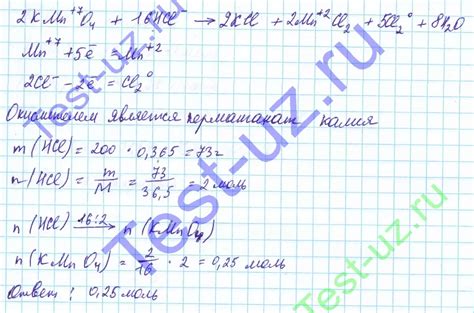 2KMn⁺⁷O₄ + 16HCl → 2KCl + 2Mn⁺²Cl₂ + 5Cl₂⁰ + 8H₂O
Mn⁺⁷ + 5e̅ = Mn⁺²
2Cl⁻ − 2e̅ = Cl₂⁰
Окислителем является перманганат калия
m (HCl) = 200 · 0,365 = 73г
n (HCl) = m/M = 73/36,5 = 2 моль
n (HCl) 16:2 → n (KMnO₄)
n (KMnO₄) = 2/16 · 2 = 0,25 моль
Ответ: 0,25 моль
Test-uz.ru
Test-uz.ru
Test-uz.ru